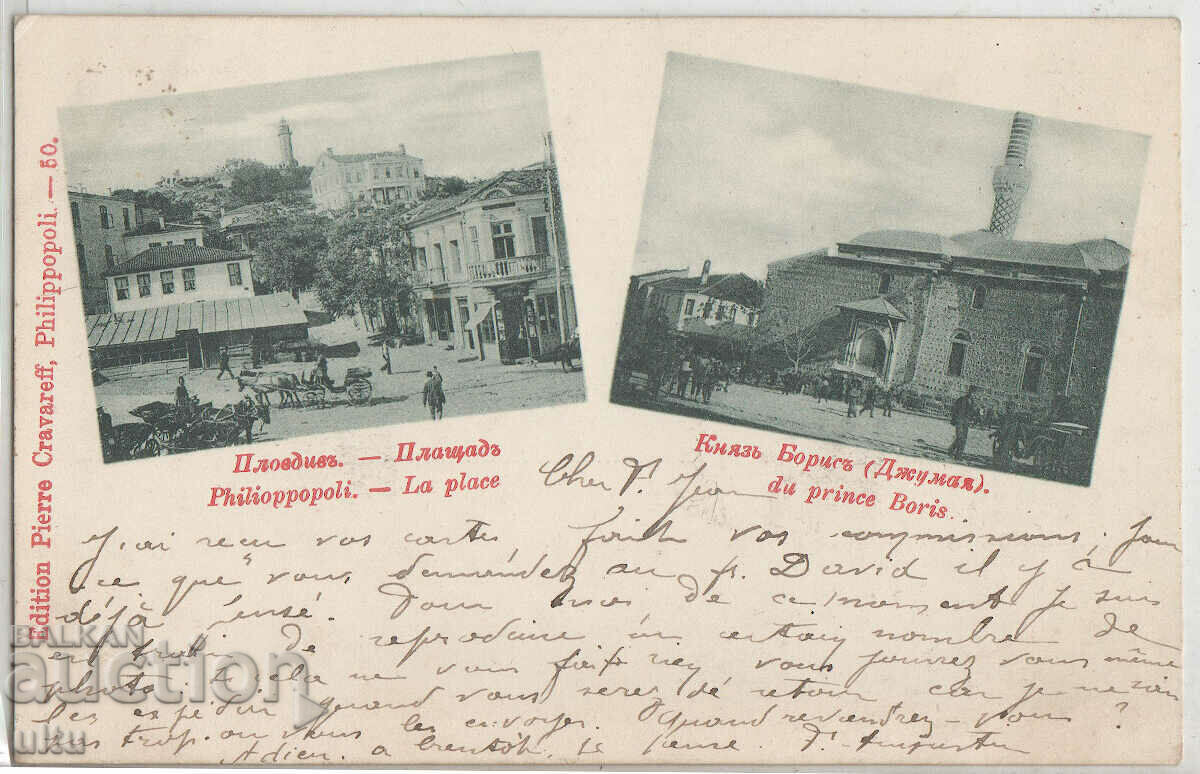 Edition Pierre Cravareff, Philippopoli. — 50.
Пловдивъ. — Площадъ
Philioppopoli. — La place
Князь Борисъ (Джумая).
du prince Boris
Cher F. Jean
J'ai reçu vos cartes, fait vos commissions, pour
ce que vous demandez au f. David il y a
déjà pensé. Pour moi de ce moment je suis
en train de reproduire un certain nombre de
photo. Si cela ne vous fait rien vous pourrez vous même
les expédier quand vous serez de retour car je ne sais
pas trop où vous les envoyer. Quand reviendrez-vous ?
Adieu. à bientôt, je pense. F. Augustin
BALKAN
auction
ultu